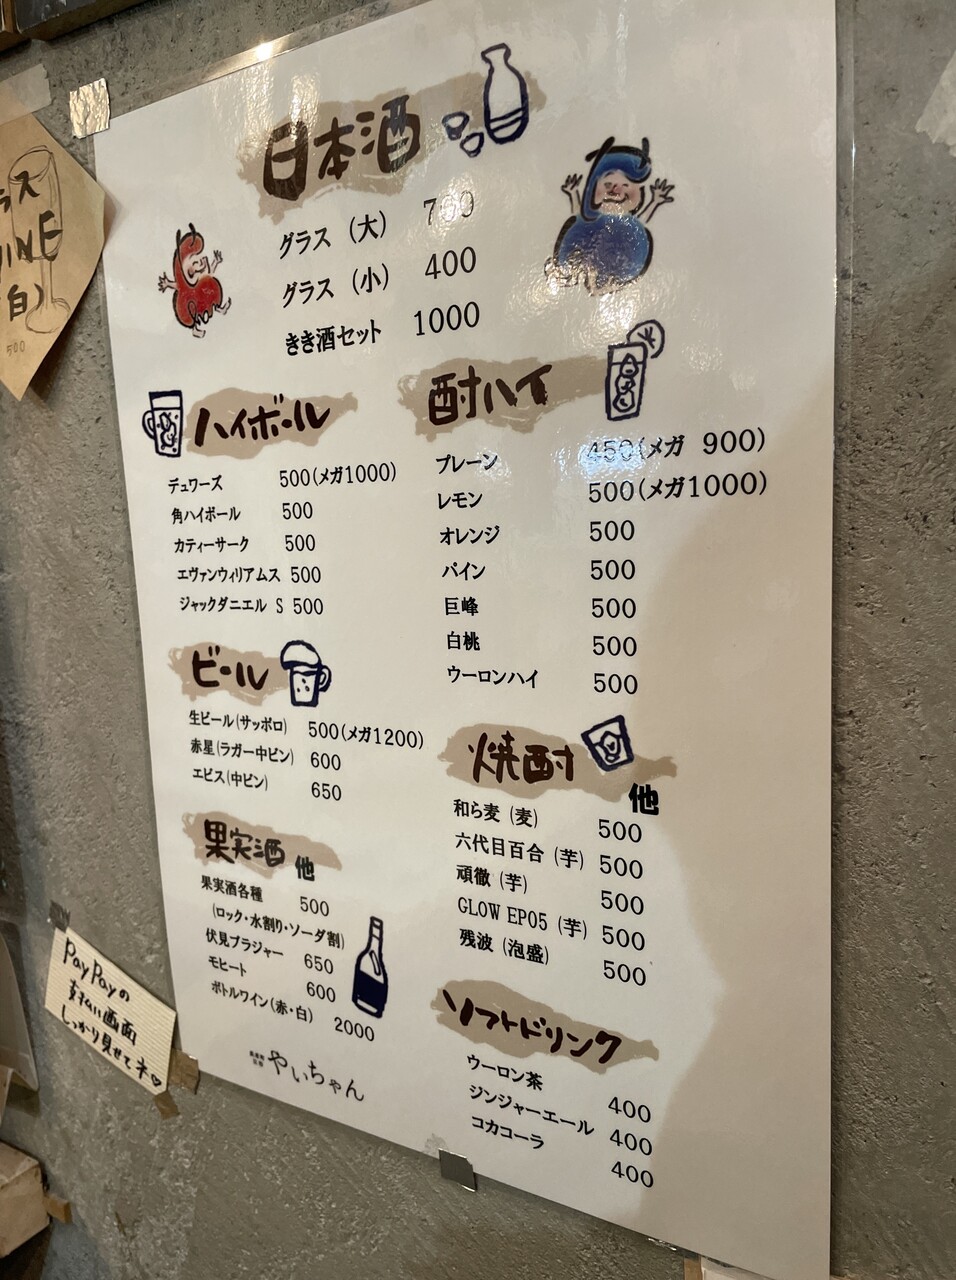 日本酒
グラス（大） 700
グラス（小） 400
きき酒セット 1000
ハイボール
デュワーズ 500(メガ1000)
角ハイボール 500
カティーサーク 500
エヴァンウィリアムス 500
ジャックダニエル S 500
ビール
生ビール(サッポロ) 500(メガ1200)
赤星(ラガー中ビン) 600
エビス(中ビン) 650
果実酒 他
果実酒各種 500
(ロック・水割り・ソーダ割)
伏見ブラジャー 650
モヒート 600
ボトルワイン(赤・白) 2000
やいちゃん
酎ハイ
プレーン 450(メガ 900)
レモン 500(メガ1000)
オレンジ 500
パイン 500
巨峰 500
白桃 500
ウーロンハイ 500
焼酎 他
和ら麦 (麦) 500
六代目百合 (芋) 500
頑徹 (芋) 500
GLOW EP05 (芋) 500
残波 (泡盛) 500
ソフトドリンク
ウーロン茶 400
ジンジャーエール 400
コカコーラ 400
ラス
INE
白)
500
PayPayの
支払い画面
しっかり見せてネ♡